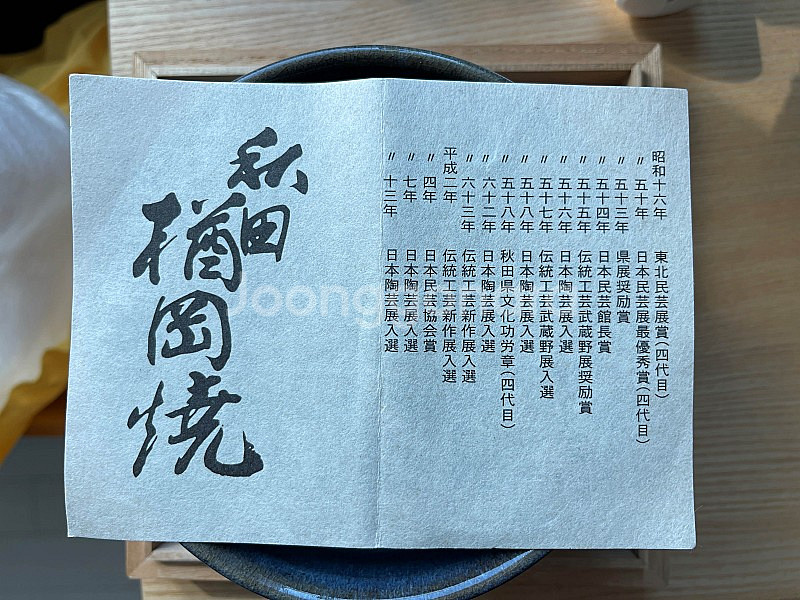 昭和十六年 東北民芸展賞(四代目)
〃 五十年 日本民芸展最優秀賞(四代目)
〃 五十三年 県展奨励賞
〃 五十四年 日本民芸館長賞
〃 五十五年 伝統工芸武蔵野展奨励賞
〃 五十六年 日本陶芸展入選
〃 五十七年 伝統工芸武蔵野展入選
〃 五十八年 日本陶芸展入選
〃 五十八年 秋田県文化功労章(四代目)
〃 六十二年 日本陶芸展入選
〃 六十三年 伝統工芸新作展入選
平成二年 伝統工芸新作展入選
〃 四年 日本民芸協会賞
〃 七年 日本陶芸展入選
〃 十三年 日本陶芸展入選
秋田
楢岡燒